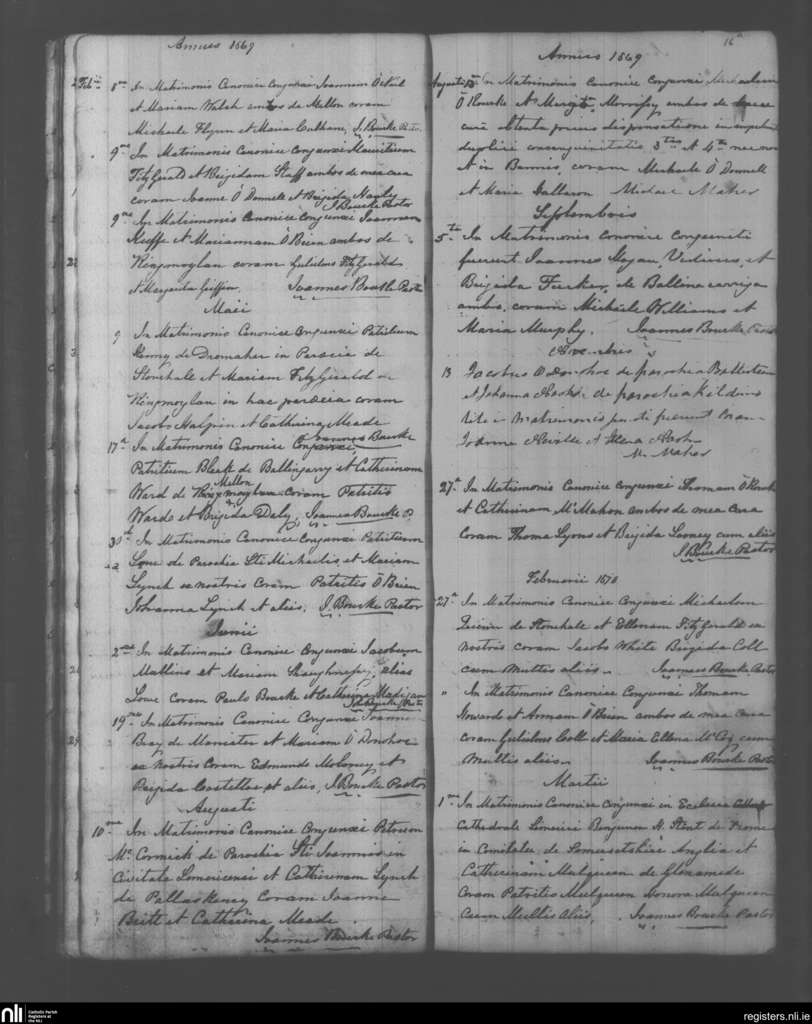 Annus 1869
Feb. 8 In Matrimonio Canonice Conjunxi Joannem
et Mariam Walsh ambos de Mellon coram
Michaele Flynn et Maria Culhane, J. Bourke Pastor
9 In Matrimonio Canonice Conjunxi Mauritium
FitzGerald et Brigidam Staff ambos de mea cura
coram Joanne O'Donnell et Brigida Hanley
J Bourke Pastor
9 In Matrimonio Canonice Conjunxi Joannem
Keeffe et Mariannam O'Brien ambos de
Ringmoylan coram Gulielmo FitzGerald
et Margarita Griffin. Joannes Bourke Pastor
Maii
9 In Matrimonio Canonice Conjunxi Patritium
Henry de Dromaher in Parocia de
Stonehale et Mariam FitzGerald de
Ringmoylan in hac parocia coram
Jacobo Halpin et Catherina Meade
Joannes Bourke
17 In Matrimonio Canonice Conjunxi
Patritium Bleak de Ballingarry et Catherinam
Mellon
Ward de Ringmoylan coram Patritio
Wardo et Brigida Daly, Joannes Bourke P.
30 In Matrimonio Canonice Conjunxi Patritium
Lowe de Parochia Sti Michaelis et Mariam
Lynch ex nostris Coram Patritio O'Brien
Johanna Lynch et aliis, J. Bourke Pastor
Junii
2 In Matrimonio Canonice Conjunxi Jacobum
Mullins et Mariam Shaughnessy, alias
Lowe Coram Paulo Bourke et Catherina
J. Bourke Pastor
19 In Matrimonio Canonice Conjunxi Joannem
Bray de Manister et Mariam O'Donohoe
ex nostris Coram Edmundo Moloney et
Brigida Costelloe et aliis, J. Bourke Pastor
Augusti
10 In Matrimonio Canonice Conjunxi Petrum
Mc Cormick de Parochia Sti Joannis in
Civitate Limericensi et Catherinam Lynch
de Pallaskenry Coram Joanne
Britt et Catherina Meade.
Joannes Bourke Pastor
16
Annus 1869
Augusti In Matrimonio Canonice Conjunxi Michaelem
O'Rourke et Margt. Morrissy ambos de hacce
cura obtenta prius dispensatione in impedimento
duplici consanguinitatis 3 et 4 nec non
et in Bannis, coram Michaele O'Donnell
et Maria Halloran Michael Maher
Septembris
5 In Matrimonio canonice conjuncti
fuerunt Joannes Hogan, Viduus, et
Brigida Tucker, de Ballinacarriga
ambo, coram Michaele Williams et
Maria Murphy. Joannes Bourke Pastor
13 Jacobus O'Donohoe de parochia
et Johanna de parochia Kildimo
rite in matrimonio juncti fuerunt coram
Joanne Neville et Helena
M. Maher
27 In Matrimonio Canonice Conjunxi Thomam O'Rourke
et Catherinam McMahon ambos de mea cura
coram Thoma Lyons et Brigida Looney cum aliis
J. Bourke Pastor
Februarii 1870
27 In Matrimonio Canonice Conjunxi Michaelem
de Stonehale et Ellenam FitzGerald ex
nostris coram Jacobo White Brigida Coll
cum multis aliis. Joannes Bourke Pastor
" In Matrimonio Canonice Conjunxi Thomam
Howard et Annam O'Brien ambos de mea cura
Coram Gulielmo Coll et Maria Ellena McCoy cum
Multis aliis. Joannes Bourke Pastor
Martii
1 In Matrimonio Canonice Conjunxi in Ecclesia
Cathedrale Limerici Benjamin H. Stent de Frome
in Comitatu de Somersetshire Anglia et
Catherinam Mulqueen de
Coram Patritio Mulqueen Honora Mulqueen
Cum Multis Aliis. Joannes Bourke Pastor
nli Catholic Parish
Registers at
the NLI
registers.nli.ie